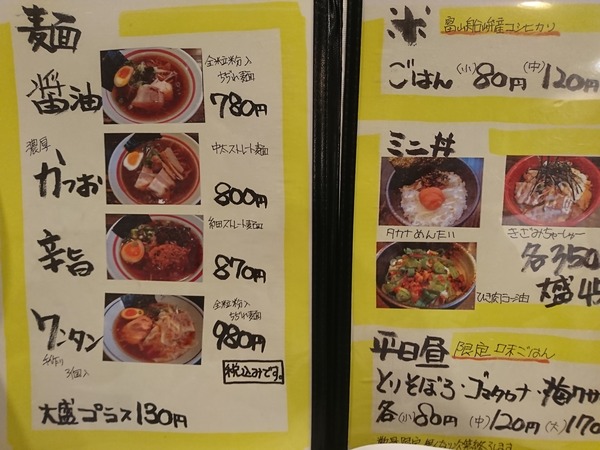 麺
醤油
全粒粉入
ちぢれ麺
780円
濃厚
かつお
中太ストレート麺
800円
辛旨
細ストレート麺
870円
ワンタン
手作り
3個入
全粒粉入
ちぢれ麺
980円
税込みです。
大盛プラス130円
米
富山 産コシヒカリ
ごはん (小)80円 (中)120円
ミニ丼
タカナめんたい
きざみちゃーしゅー
ひき肉ラー油
各350
大盛45
平日昼 限定 味ごはん
とりそぼろ・ゴマタカナ・梅ワサ
各(小)80円 (中)120円 (大)170